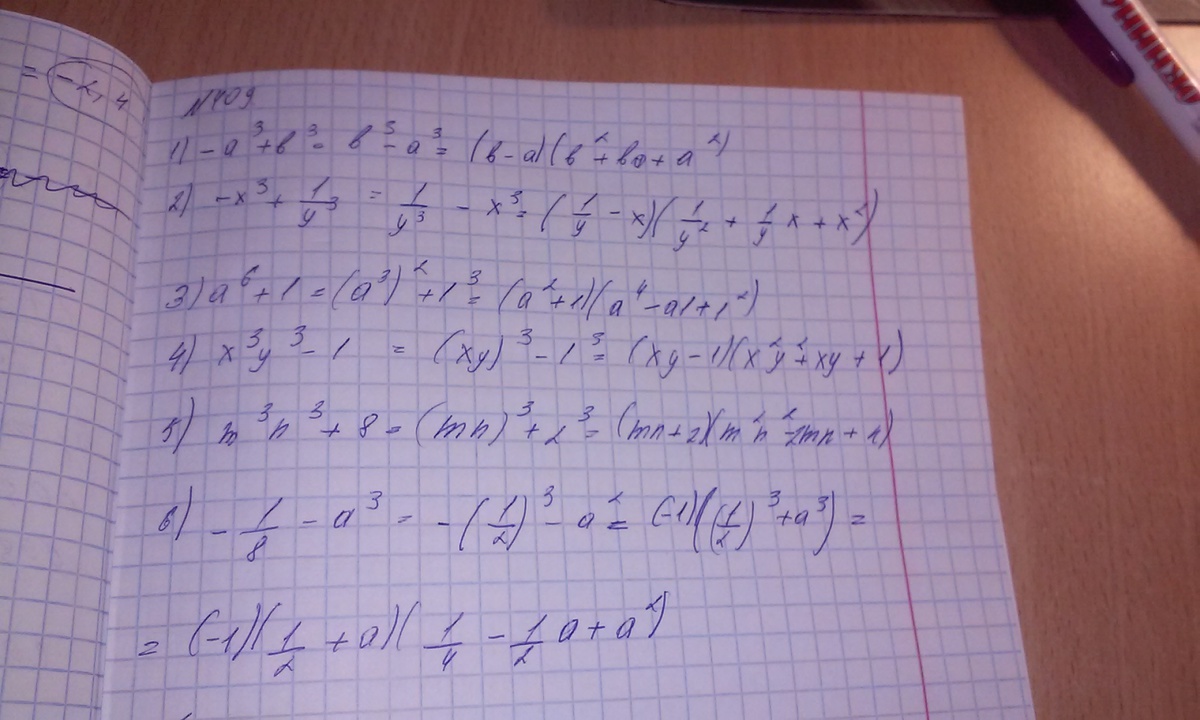 = -2,4
№409
1) -a³+b³= b³-a³= (b-a)(b²+ba+a²)
2) -x³+1/y³ = 1/y³ - x³= (1/y - x)(1/y² + 1/y x + x²)
3) a⁶+1 = (a³)²+1³= (a²+1)(a⁴-a1+1²)
4) x³y³-1 = (xy)³-1³= (xy-1)(x²y²+xy+1)
5) m³n³+8= (mn)³+2³= (mn+2)(m²n²-2mn+4)
6) -1/8 - a³ = -(1/2)³-a²= (-1)((1/2)³+a³) =
= (-1)(1/2 + a)(1/4 - 1/2 a + a²)